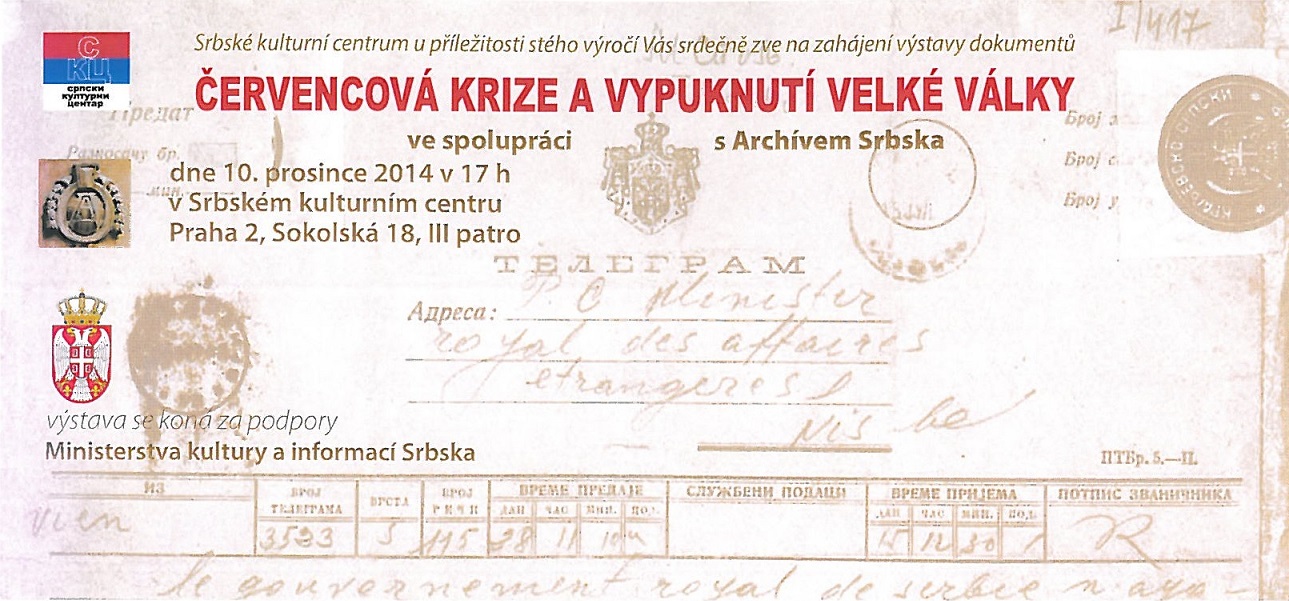 I/417
Srbské kulturní centrum u příležitosti stého výročí Vás srdečně zve na zahájení výstavy dokumentů
ČERVENCOVÁ KRIZE A VYPUKNUTÍ VELKÉ VÁLKY
СКЦ
српски
културни
центар
Предат
ve spolupráci s Archívem Srbska
Број
Разносачу бр.
мин.
Број
Број
dne 10. prosince 2014 v 17 h
v Srbském kulturním centru
Praha 2, Sokolská 18, III patro
ТЕЛЕГРАМ
Адреса: P. C Minister
royal des affaires
etrangeres
Nis
výstava se koná za podpory
Ministerstva kultury a informací Srbska
ПТБр. 5.—П.
ИЗ БРОЈ ТЕЛЕГРАМА ВРСТА БРОЈ РЕЧИ ВРЕМЕ ПРЕДАЈЕ СЛУЖБЕНИ ПОДАЦИ ВРЕМЕ ПРИЈЕМА ПОТПИС ЗВАНИЧНИКА
ДАН ЧАС МИН. ПОД. ДАН ЧАС МИН. ПОД.
Vien 3523 5 115 28 11 10 12 30
Le gouvernement royal de Serbie n aya-